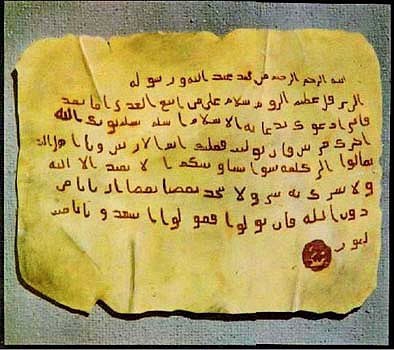 بسم الله الرحمن الرحيم من محمد عبد الله ورسوله
الى هرقل عظيم الروم سلام على من اتبع الهدى اما بعد
فاني ادعوك بدعاية الاسلام اسلم تسلم يوتك الله
اجرك مرتين فان توليت فعليك اثم الاريسين ويا اهل الكتاب
تعالوا الى كلمة سوا بيننا وبينكم الا نعبد الا الله
ولا نشرك به شيئا ولا يتخذ بعضنا بعضا اربابا من
دون الله فان تولوا فقولوا اشهدوا بانا مس
لمون